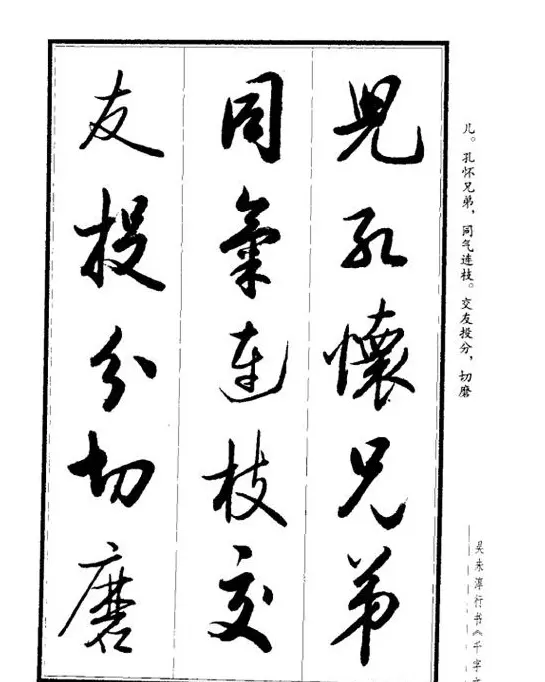 兒孔懷兄弟
同氣連枝交
友投分切磨
儿。孔怀兄弟，同气连枝。交友投分，切磨
吴未淳行书《千字文